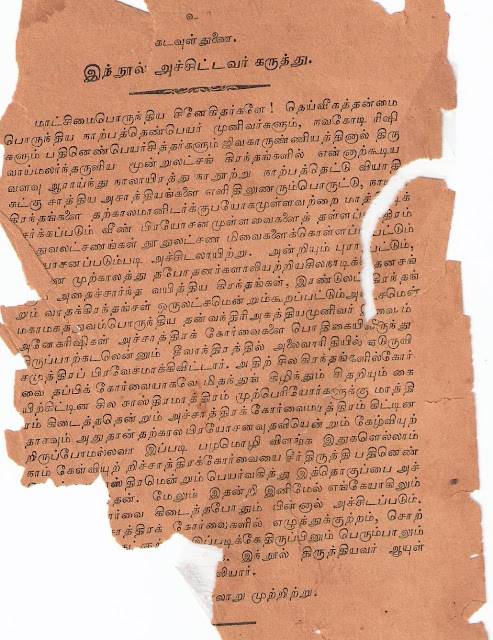 உ
கடவுள் துணை.
இந்நூல் அச்சிட்டவர் கருத்து.
மாட்சிமைபொருந்திய சினேகிதர்களே! தெய்வீகத்தன்மை
பொருந்திய நாற்பத்தெண்பெயர் முனிவர்களும், நவகோடி ரிஷி
களும் பதினெண்பெயர்சித்தர்களும் ஜீவகாருண்ணியத்தினால் திரு
வாய்மலர்ந்தருளிய மூன்றுலட்சங் கிரந்தங்களில் என்னாற்கூடிய
வளவு ஆராய்ந்து நாலாயிரத்து நானூற்று நாற்பத்தெட்டு வியாதி
கட்கு சாத்திய அசாத்தியங்களை எளிதிலுணரும்பொருட்டு,
கிரந்தங்களை தற்காலமானிடர்க்குபயோகமுள்ளவற்றை
சேர்க்கப்படும் வீண் பிரயோசனமுள்ளவைகளைத்
துவலட்சணங்கள் தூதுலட்சண மிவைகளைக்கொள்ளப்பட்டும்
படி அச்சிடலாயிற்று. அன்றியும்
முற்காலத்து தபோதனர்களாலியற்றிய
அதைச்சார்ந்த வயித்திய கிரந்தங்கள்,
றும் வாதக்கிரந்தங்கள் ஒருலட்சமென்றும்கூறப்பட்டும்
மகாமகத்துவம்பொருந்திய தன்வந்திரிஅகத்தியமுனிவர்
அனேகரிஷிகள் அச்சாத்திரக் கோர்வைகளை பொதிகையிலிருந்து
திருப்பாற்கடலென்னும் தீவாந்திரத்தில் அலைவாரிதியில் ஏடுருவி
சமுத்திரப் பிரவேசமாக்கிவிட்டார். அதிற் சில கிரந்தங்களில்கோர்
வை தப்பிக் கோர்வையாகவே மிதந்துங் கிழிந்தும் சிதறியும் கை
யிற்கிட்டின சில சாஸ்திரமாத்திரம் முற்பெரியோர்களுக்கு மாத்தி
ரம் கிடைத்ததென்றும் அச்சாத்திரக் கோர்வைமாத்திரம் கிட்டின
தாகவும் அதுதான் தற்கால பிரயோசனவுதவியென்றும் கேழ்வியுற்
றிருப்போமல்லவா இப்படி பழமொழி விளங்க இதுகளெல்லாம்
நாம் கேள்வியுற் றிச்சாத்திரக்கோர்வையை சீர்திருத்தி பதினெண்
திரமென்றும்பெயர்வகித்து இத்தொகுப்பை அச்
தேன். மேலும் இதன்றி இனிமேல் எங்கேயாகிலும்
கோர்வை கிடைத்தபோதும் பின்னால் அச்சிடப்படும்.
சாத்திரக் கோர்வைகளில் எழுத்துக்குற்றம், சொற்
இப்படிக்கேதிருப்பினும் பெரும்பாலும்
இந்நூல் திருத்தியவர் ஆயுள்
லியார்.
லாறு முற்றிற்று.